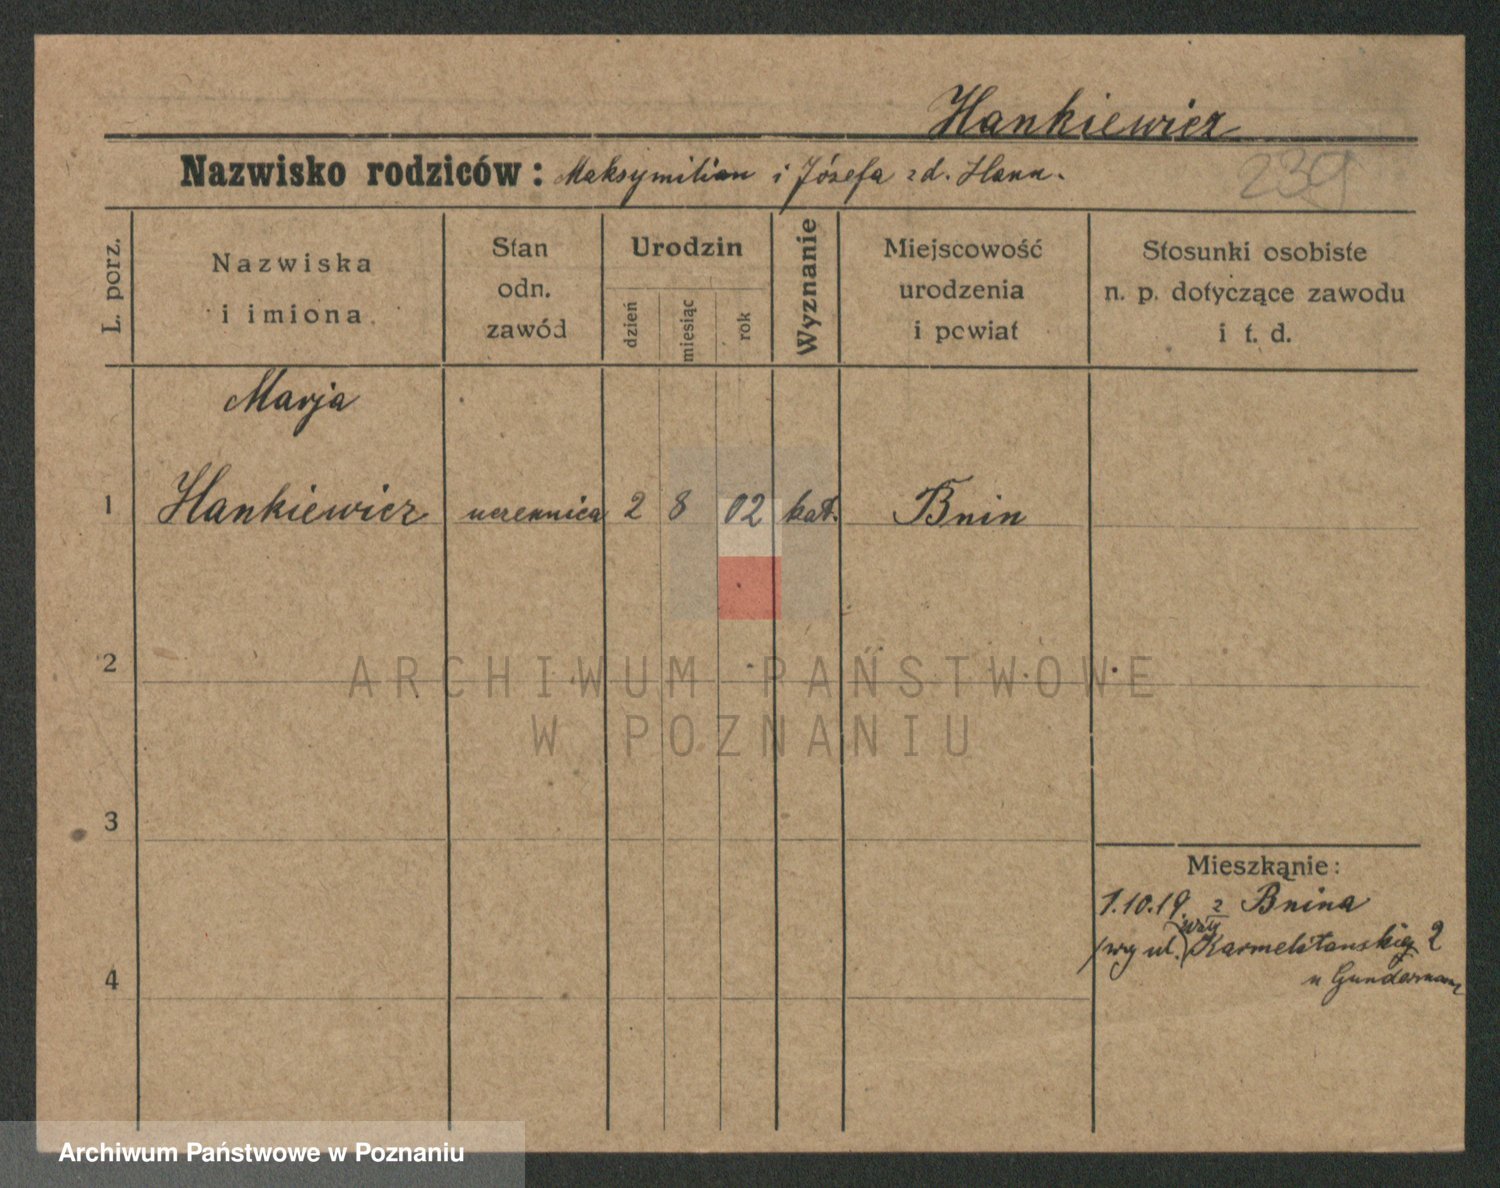 Hankiewicz
Nazwisko rodziców: Maksymilian i Józefa zd. Hann.
239
L. porz.
Nazwiska
i imiona
Stan
odn.
zawód
Urodzin
dzień
miesiąc
rok
Wyznanie
Miejscowość
urodzenia
i powiat
Stosunki osobiste
n. p. dotyczące zawodu
i t. d.
Marja
1 Hankiewicz uczennica 2 8 02 kat. Bnin
2
ARCHIWUM PAŃSTWOWE
W POZNANIU
3
Mieszkanie:
1.10.19. z Bnina
Wały
wg ul. Karmelitanskiej 2
4
u
Archiwum Państwowe w Poznaniu